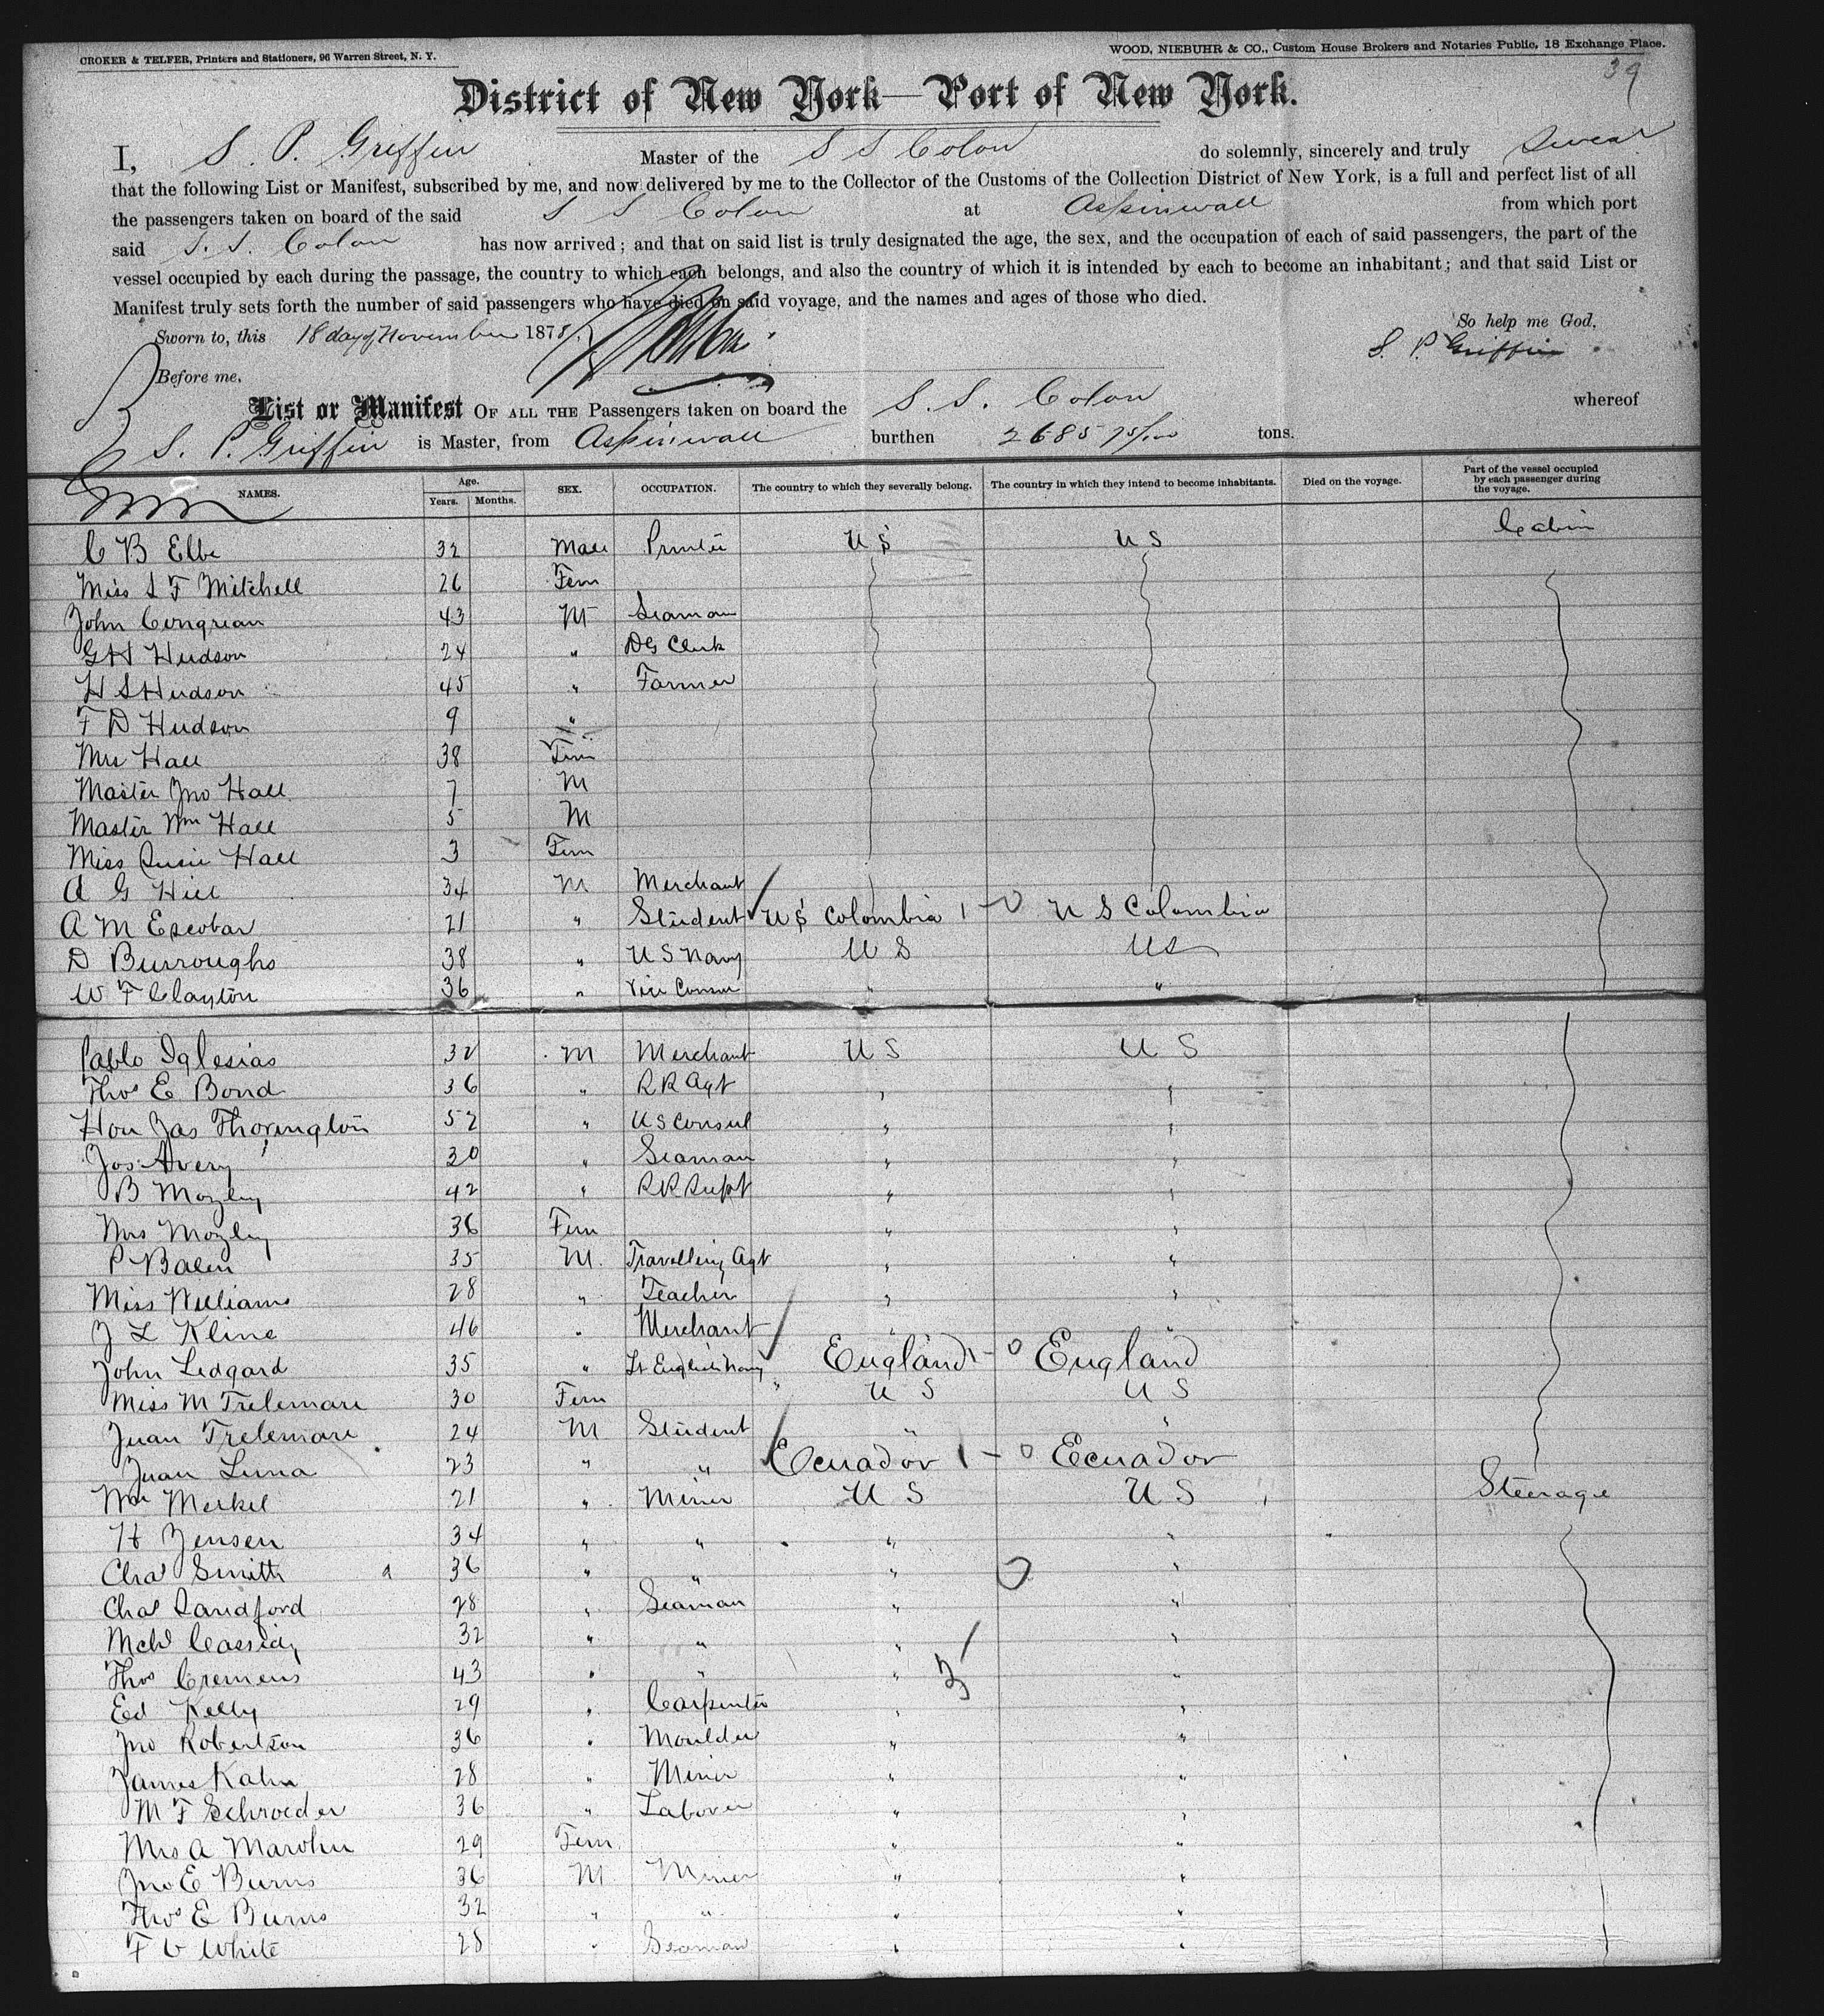 CROKER & TELFER, Printers and Stationers, 96 Warren Street, N. Y.
WOOD, NIEBUHR & CO., Custom House Brokers and Notaries Public, 18 Exchange Place.
39
District of New York—Port of New York.
I, S. P. Griffin Master of the S S Colon do solemnly, sincerely and truly Swear
that the following List or Manifest, subscribed by me, and now delivered by me to the Collector of the Customs of the Collection District of New York, is a full and perfect list of all
the passengers taken on board of the said S S Colon at Aspinwall from which port
said S. S. Colon has now arrived; and that on said list is truly designated the age, the sex, and the occupation of each of said passengers, the part of the
vessel occupied by each during the passage, the country to which each belongs, and also the country of which it is intended by each to become an inhabitant; and that said List or
Manifest truly sets forth the number of said passengers who have died on said voyage, and the names and ages of those who died.
Sworn to, this 18 day of November 1878 So help me God,
S. P. Griffin
Before me.
List or Manifest OF ALL THE Passengers taken on board the S. S. Colon whereof
S. P. Griffin is Master, from Aspinwall burthen 2685 75/100 tons.
NAMES. Age. Years. Months. SEX. OCCUPATION. The country to which they severally belong. The country in which they intend to become inhabitants. Died on the voyage. Part of the vessel occupied by each passenger during the voyage.
C B Elbe 32 Male Printer U S U S Cabin
Miss S F Mitchell 26 Fem
John Congrean 43 M Seaman
G H Hudson 24 " DG Clerk
H S Hudson 45 " Farmer
F D Hudson 9 "
Mrs Hall 38 Fem
Master Jno Hall 7 M
Master Wm Hall 5 M
Miss Susie Hall 3 Fem
A G Hill 34 M Merchant
A M Escobar 21 " Student U S Colombia 1 - 0 U S Colombia
D Burroughs 38 " U S Navy U S U S
W F Clayton 36 " Vice Consul " "
Pablo Iglesias 32 M Merchant U S U S
Thos E Bond 36 " R R Agt " "
Hon Jas Thorington 52 " U S Consul " "
Jos Avery 30 " Seaman " "
B Mozley 42 " R R Supt " "
Mrs Mozley 36 Fem " "
P Balen 35 M. Travelling Agt " "
Miss Williams 28 " Teacher " "
J L Kline 46 " Merchant " "
John Ledgard 35 " Lt English Navy England 1 - 0 England
Miss M Trelemare 30 Fem " U S U S
Juan Trelemare 24 M Student " "
Juan Luna 23 " " Ecuador 1 - 0 Ecuador
Wm Merkel 21 " Miner U S U S Steerage
H Jensen 34 " " " "
Chas Smith 36 " " " "
Chas Sandford 28 " Seaman " "
Mchl Cassidy 32 " " " "
Thos Cremens 43 " " " "
Ed Kelly 29 " Carpenter " "
Jno Robertson 36 " Moulder " "
James Kahn 28 " Miner " "
M F Schroeder 36 " Laborer " "
Mrs A Marohn 29 Fem " "
Jno E Burns 36 M Miner " "
Thos E Burns 32 " " " "
F V White 28 " Seaman " "